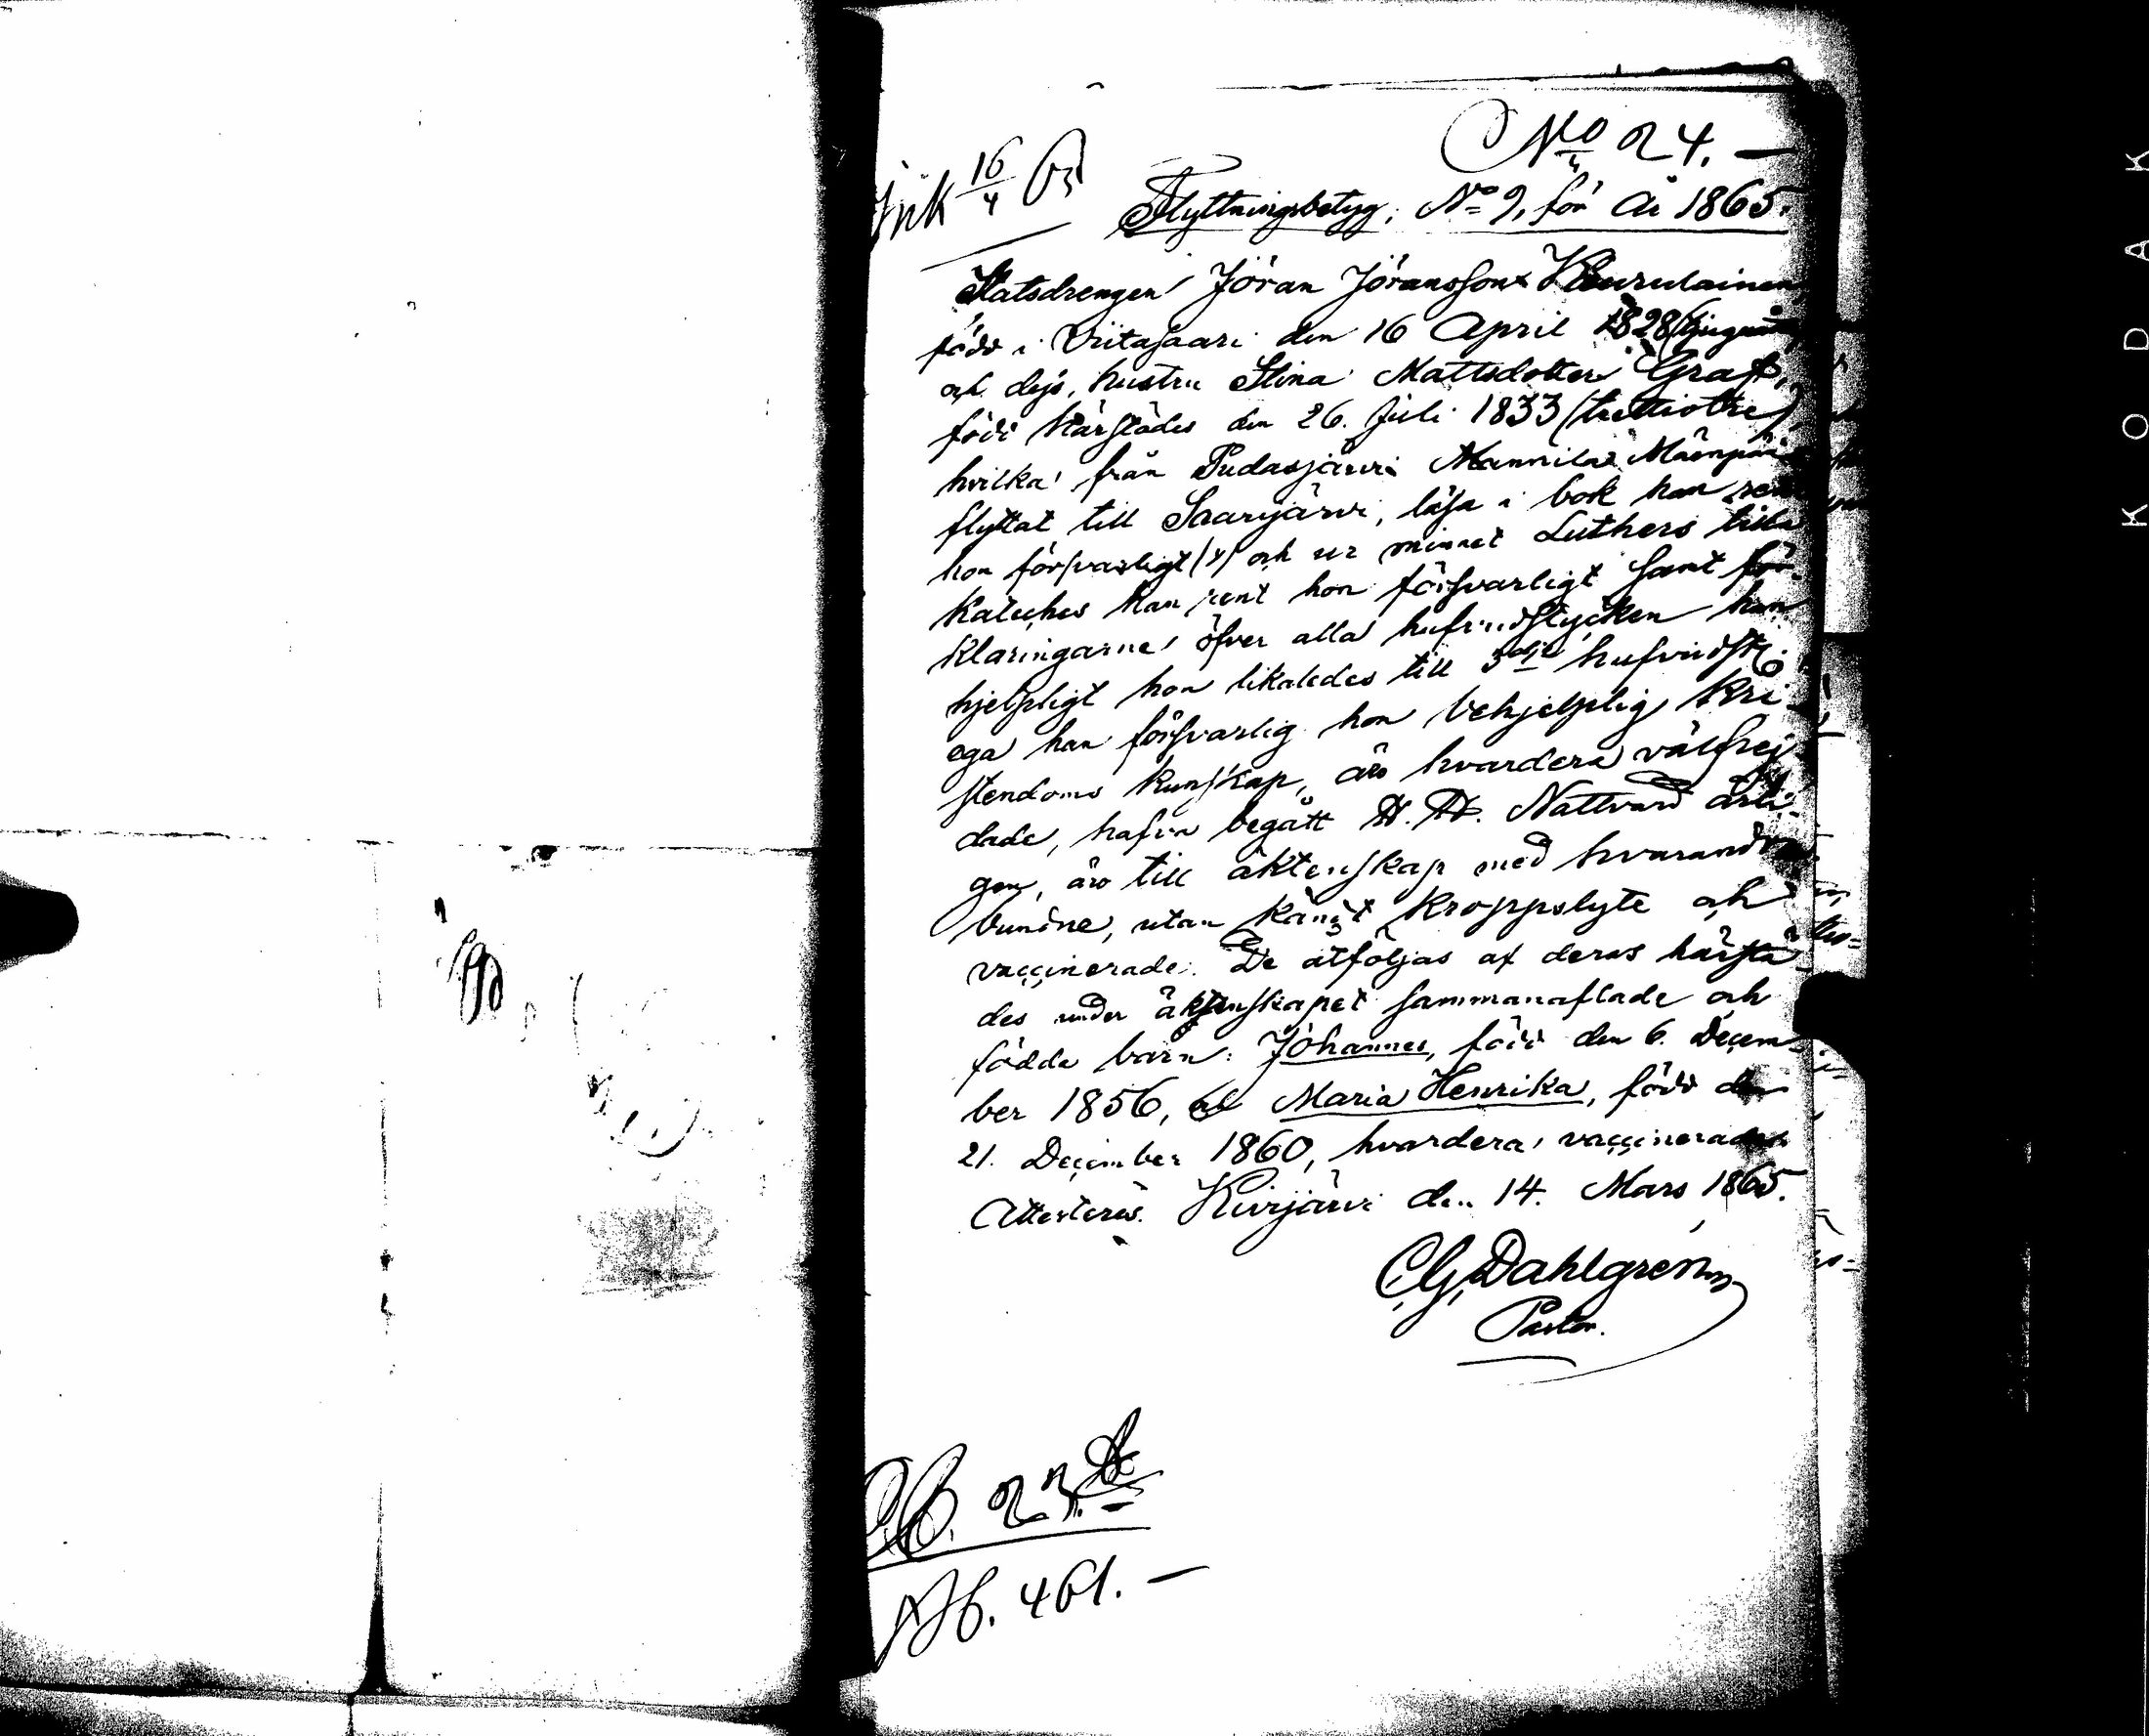 No 24. —
Ink 16/4 65
Flyttningsbetyg, No 9, för År 1865.
Statsdrengen Jöran Jöransson
född i Viitasaari den 16 April 1828 (tjuguåtta)
och dess hustru Stina Mattsdotter Graf,
född härstädes den 26. Juli 1833 (trettiotre),
hvilka från Pudasjärvi Mannila Mäenpää
flyttat till Saarijärvi, läsa i bok han rent
hon försvarligt (4) och ur minnet Luthers lilla
Kateches han rent hon försvarligt samt för-
klaringarne öfver alla hufvudstycken han
hjelpligt hon likaledes till 3dje hufvudst.
ega han försvarlig hon behjelplig Kri-
stendoms kunskap, äro hvardera välfrej-
dade, hafva begått H. H. Nattvard årli-
gen, äro till äktenskap med hvarandra
bundne, utan känt kroppslyte och
vaccinerade. De åtföljas af deras härstä-
des under äktenskapet sammanaflade och
födda barn: Johannes, född den 6. Decem-
ber 1856, och Maria Henrika, född den
21. December 1860, hvardera vaccinerade.
Attesteras. Kivijärvi den 14. Mars 1865.
C.G. Dahlgren
Pastor.
23.
461. —
KODAK